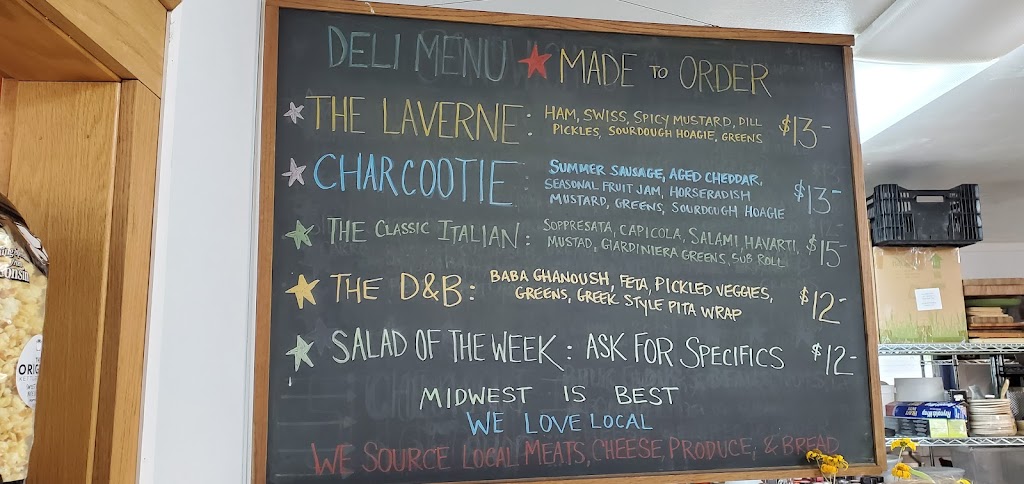 DELI MENU ★ MADE TO ORDER
★ THE LAVERNE: HAM, SWISS, SPICY MUSTARD, DILL
PICKLES, SOURDOUGH HOAGIE, GREENS $13-
★ CHARCOOTIE: SUMMER SAUSAGE, AGED CHEDDAR,
SEASONAL FRUIT JAM, HORSERADISH
MUSTARD, GREENS, SOURDOUGH HOAGIE $13-
★ THE CLASSIC ITALIAN: SOPPRESATA, CAPICOLA, SALAMI, HAVARTI,
MUSTAD, GIARDINIERA GREENS, SUB ROLL $15-
★ THE D&B: BABA GHANOUSH, FETA, PICKLED VEGGIES,
GREENS, GREEK STYLE PITA WRAP $12-
★ SALAD OF THE WEEK: ASK FOR SPECIFICS $12-
MIDWEST IS BEST
WE LOVE LOCAL
WE SOURCE LOCAL MEATS, CHEESE, PRODUCE, & BREAD